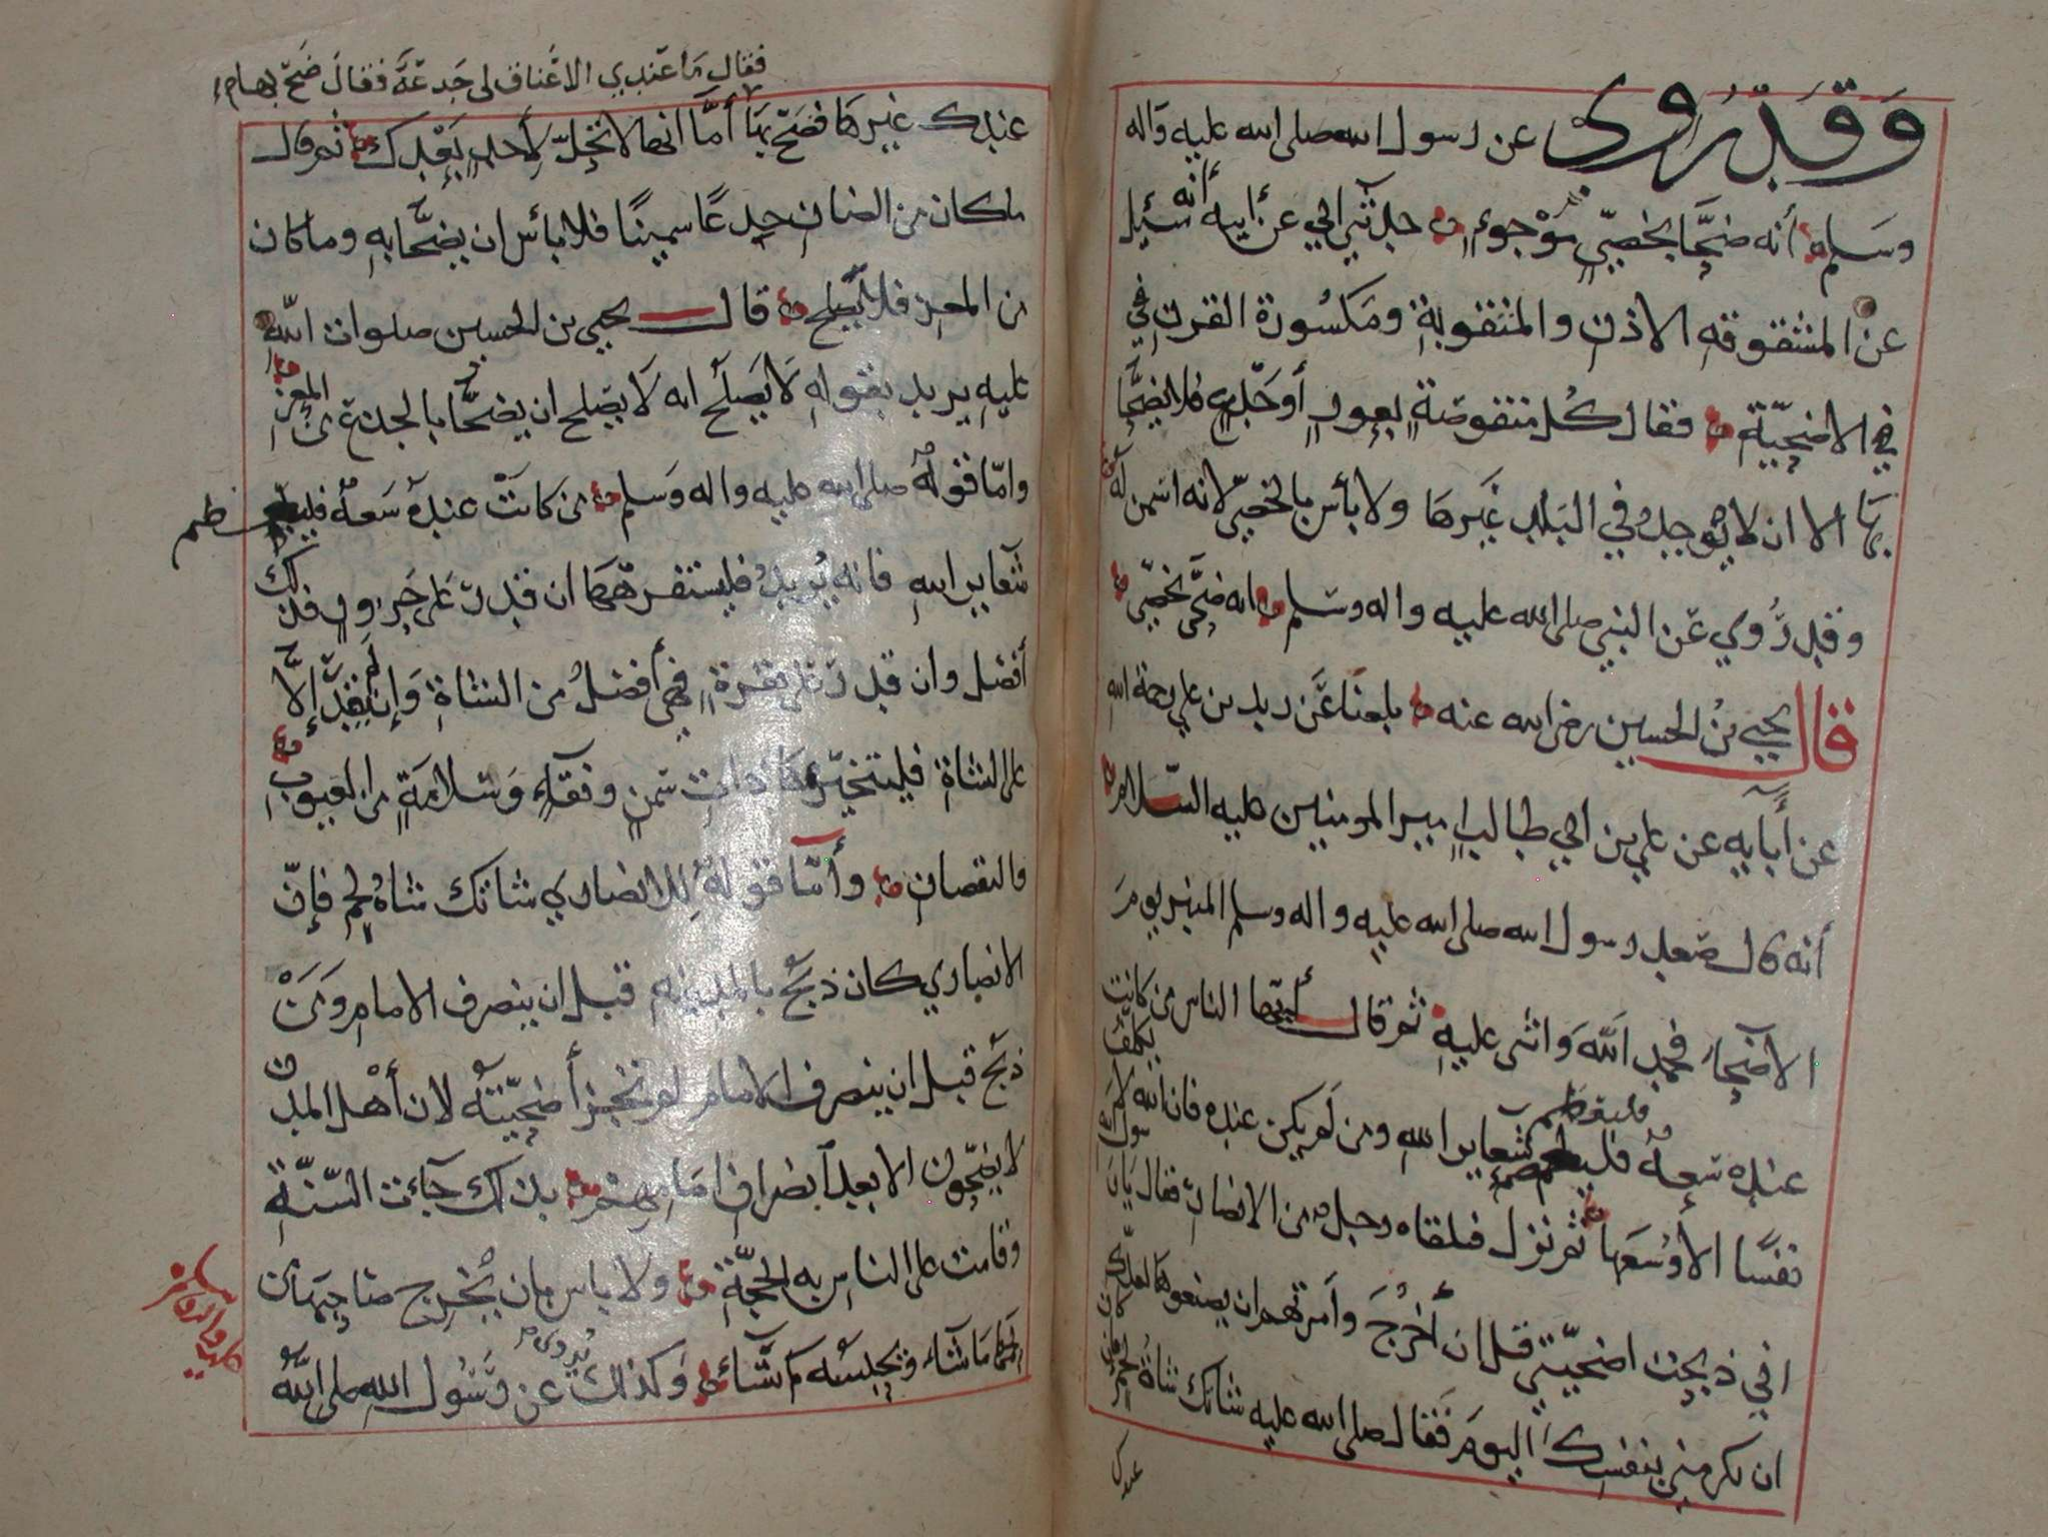 وَقَدْ رُوِيَ عن رسول الله صلى الله عليه وَاله
وسَلم أنه ضحَّا بخصيٍّ مَوْجوءٍ حدثني ابي عن أبيه أنه سئيل
عن المشقوقه الاذن والمثقوبةِ ومَكسُورة القرن
في الاضحيّة فقال كُل منقوصةٍ بعورٍ أو جَدعٍ فلا يضحَّا
بهَا الا ان لا يوجدُ في البَلد غَيرها ولا بأس بالخصيّ لانه اسمن له
وقد رُّوي عَن النبي صلى الله عليه واله وسَلم انه ضحَّى بخصيّ
قال يحيي بنُ الحسين رضي الله عنه بلغنَا عَن زيد بن علي رحمة الله
عن أَبآيه عن علي بن ابي طالب اميرالمومنين عليه السّلام
أنه قال صَعد رسول الله صلى الله عليه واله وسلم المنبر يومَ
الاضحَا فحمِد اللَّهَ وَاثنى عليهِ ثم قال أيّها الناس من كانت
عنده سَعةٌ فليعظم شعاير اللهِ ومن لم يكن عنده فان الله لا يكلف
فليعظم
نفسًا الا وُسْعَها ثم نزل فلقاه رجلٌ من الانصار فقال يَا رسول
اني ذبحت اضحيّتي قبل ان أخرُجَ وأمرتهم ان يصنعوها لعلك
ان تكرمني بنفسك اليومَ فَقال صلى الله عليه شاتك شاة لحمٍ فان كان
عندك
فقال مَا عندي الا عَناق لي جَدعَة فقالَ ضَحّ بها
عندك غيرها فضَحّ بهَا أمَّا انها لا تحِلّ لأحدٍ بَعْدك ثم قال
ما كان من الضان جدعًا سمينًا فلا بأس ان يضحَّا بهِ وما كان
من المعز فلا يصلح قال يحيي بن الحسين صلوات اللَّهِ
عليهِ يريد بقولهِ لَا يَصلُح انه لَا يصلح ان يضحَّا بالجذع من المعز
وامّا قولُهُ صلى الله عليه واله وَسلم من كانتْ عندهُ سَعةٌ فليعظم
شعاير اللهِ فانه يُريدُ فليستفرهها ان قدر عَلى جَزورٍ فذلك
أفضل وان قدر عَلى بقرةٍ فهي أفضلُ من الشاة وَإن لم يقدرْ إلَّا
على الشاة فليتخيّرها ذات سَمنٍ ونقاءٍ وسَلامَةٍ من العيوبِ
والنقصان وأمَّا قولُهُ للانصاري شاتك شاةُ لحمٍ فإنَّ
الانصاري كان ذبَحَ بالمدينه قبل ان ينصرف الامام وَمَنْ
ذبَحَ قبل ان ينصرف الامام لم تُجز أضحيّتهُ لان أهْل المدن
لا يضحّون الا بعد انصراف امَامِهم بذلك جآءت السّنّةُ
وقامت على الناس به الحجّةُ ولا باس بان يُخرج صَاحِبهَا من
لَحمهَا مَا شآءَ ويحبسُ مَا شآءَ وكذلك رُوي عن رَّسُول اللهِ صلى اللَّهُ
عليه وآله وسلم